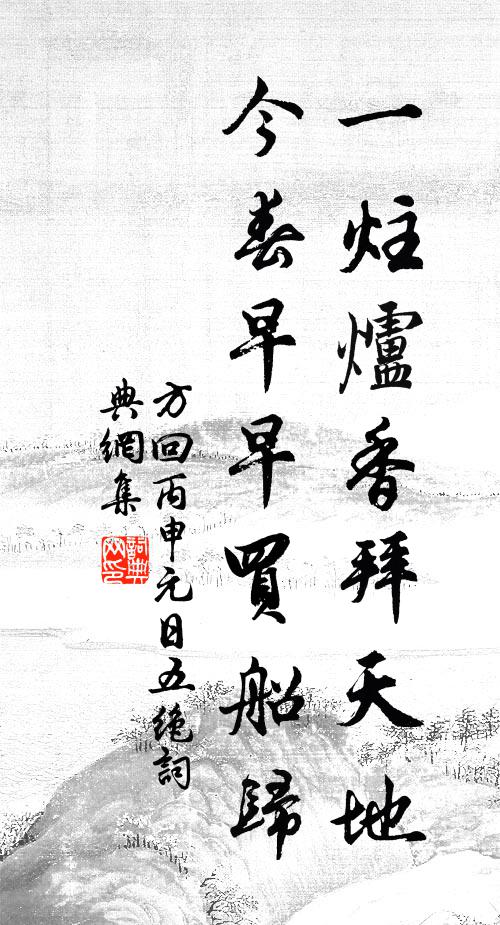 一炷爐香拜天地
今春早早買船歸
方回丙申元日五絕詞
典網集
詞典網印